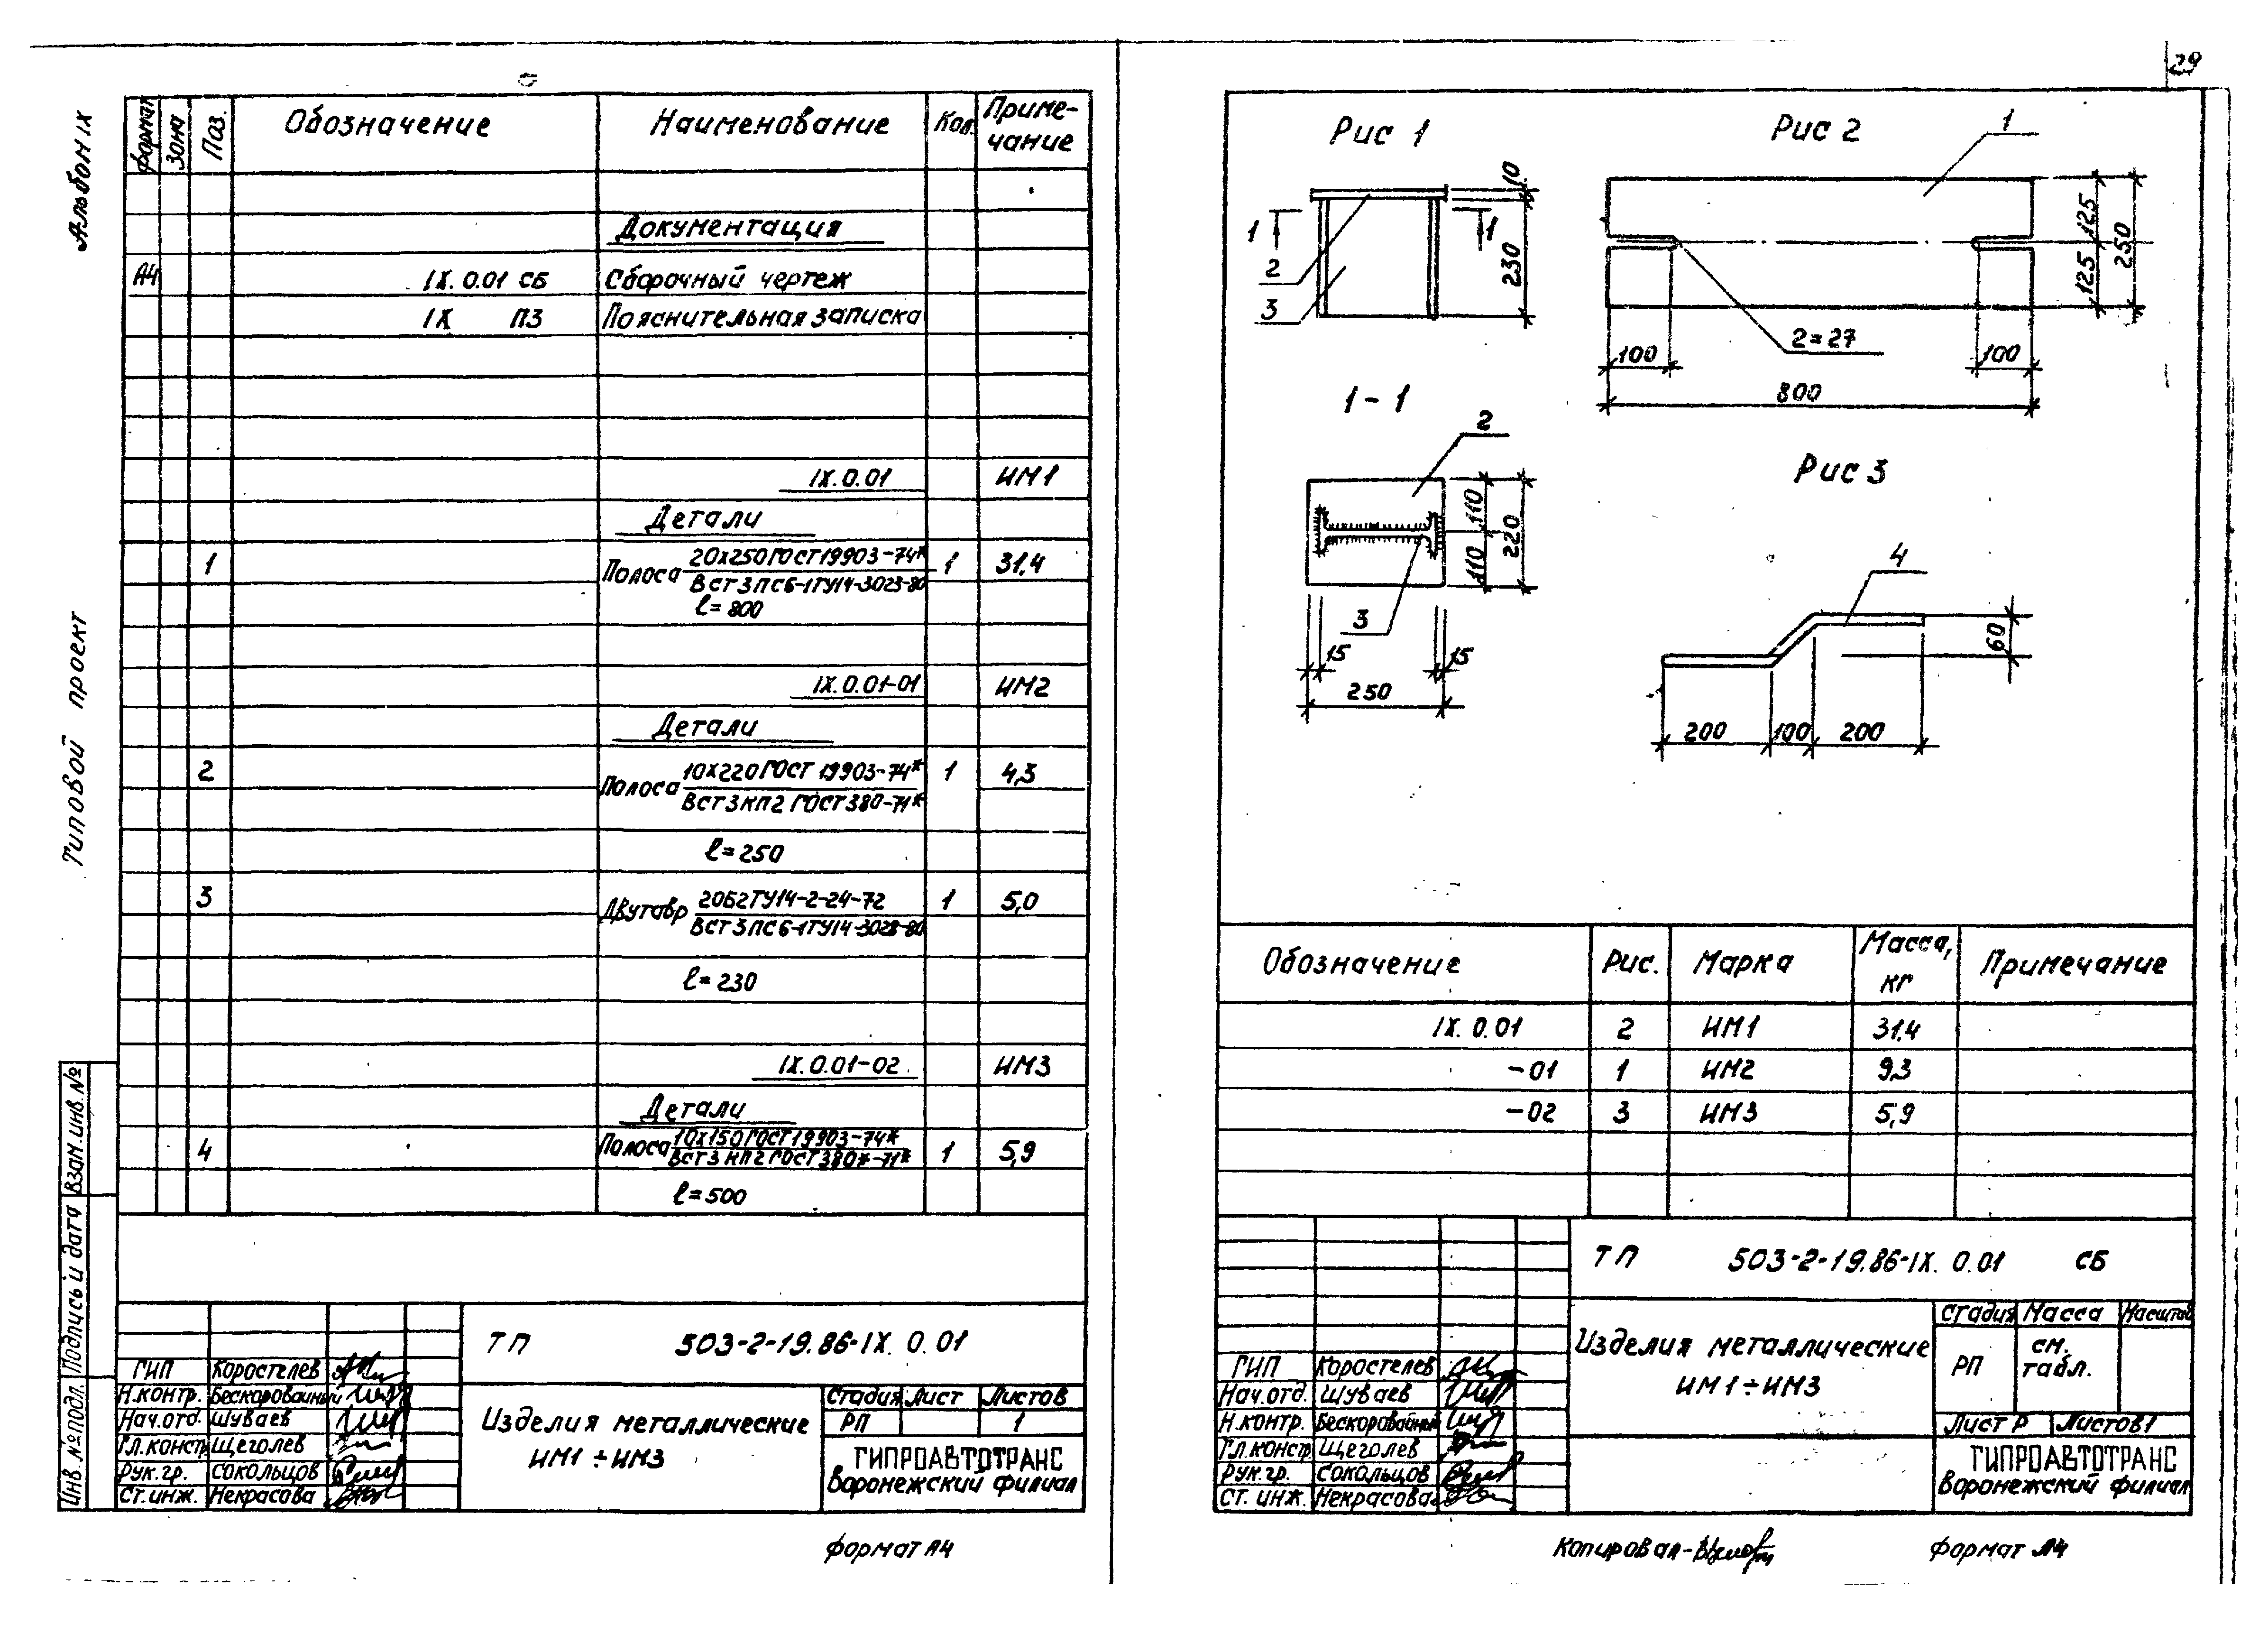 29
Альбом IX
Типовой проект
Взам.инв.№
Подпись и дата
Инв.№подл.
Формат Зона Поз. Обозначение Наименование Кол. Приме-
чание
Документация
А4 IX.0.01 СБ Сборочный чертеж
IX ПЗ Пояснительная записка
IX.0.01 ИМ1
Детали
1 Полоса 20х250ГОСТ19903-74* 1 31,4
ВСТ3ПС6-1ТУ14-3023-80
ℓ=800
IX.0.01-01 ИМ2
Детали
2 Полоса 10х220ГОСТ19903-74* 1 4,3
ВСТ3КП2 ГОСТ380-71*
ℓ=250
3 Двутавр 20Б2ТУ14-2-24-72 1 5,0
ВСТ3ПС6-1ТУ14-3023-80
ℓ=230
IX.0.01-02 ИМ3
Детали
4 Полоса 10х150ГОСТ19903-74* 1 5,9
ВСТ3КП2ГОСТ380*-71*
ℓ=500
ТП 503-2-19.86-IX.0.01
ГИП Коростелев
Н.контр. Бескоровайный
Нач.отд. Шуваев
Гл.констр. Щеголев
Рук.гр. Сокольцов
Ст.инж. Некрасова
Изделия металлические
ИМ1÷ИМ3
Стадия Лист Листов
РП 1
ГИПРОАВТОТРАНС
Воронежский филиал
Формат А4
Рис 1
10
230
1 1
2
3
Рис 2
1
125
125
250
2=27
100 100
800
1-1
2
110
110
220
3
15 15
250
Рис 3
4
60
200 100 200
Обозначение Рис. Марка Масса,
кг Примечание
IX.0.01 2 ИМ1 31,4
-01 1 ИМ2 9,3
-02 3 ИМ3 5,9
ТП 503-2-19.86-IX.0.01 СБ
ГИП Коростелев
Нач.отд. Шуваев
Н.контр. Бескоровайный
Гл.констр. Щеголев
Рук.гр. Сокольцов
Ст.инж. Некрасова
Изделия металлические
ИМ1÷ИМ3
Стадия Масса Масштаб
РП см.
табл.
Лист Р Листов1
ГИПРОАВТОТРАНС
Воронежский филиал
Копировал- Формат А4